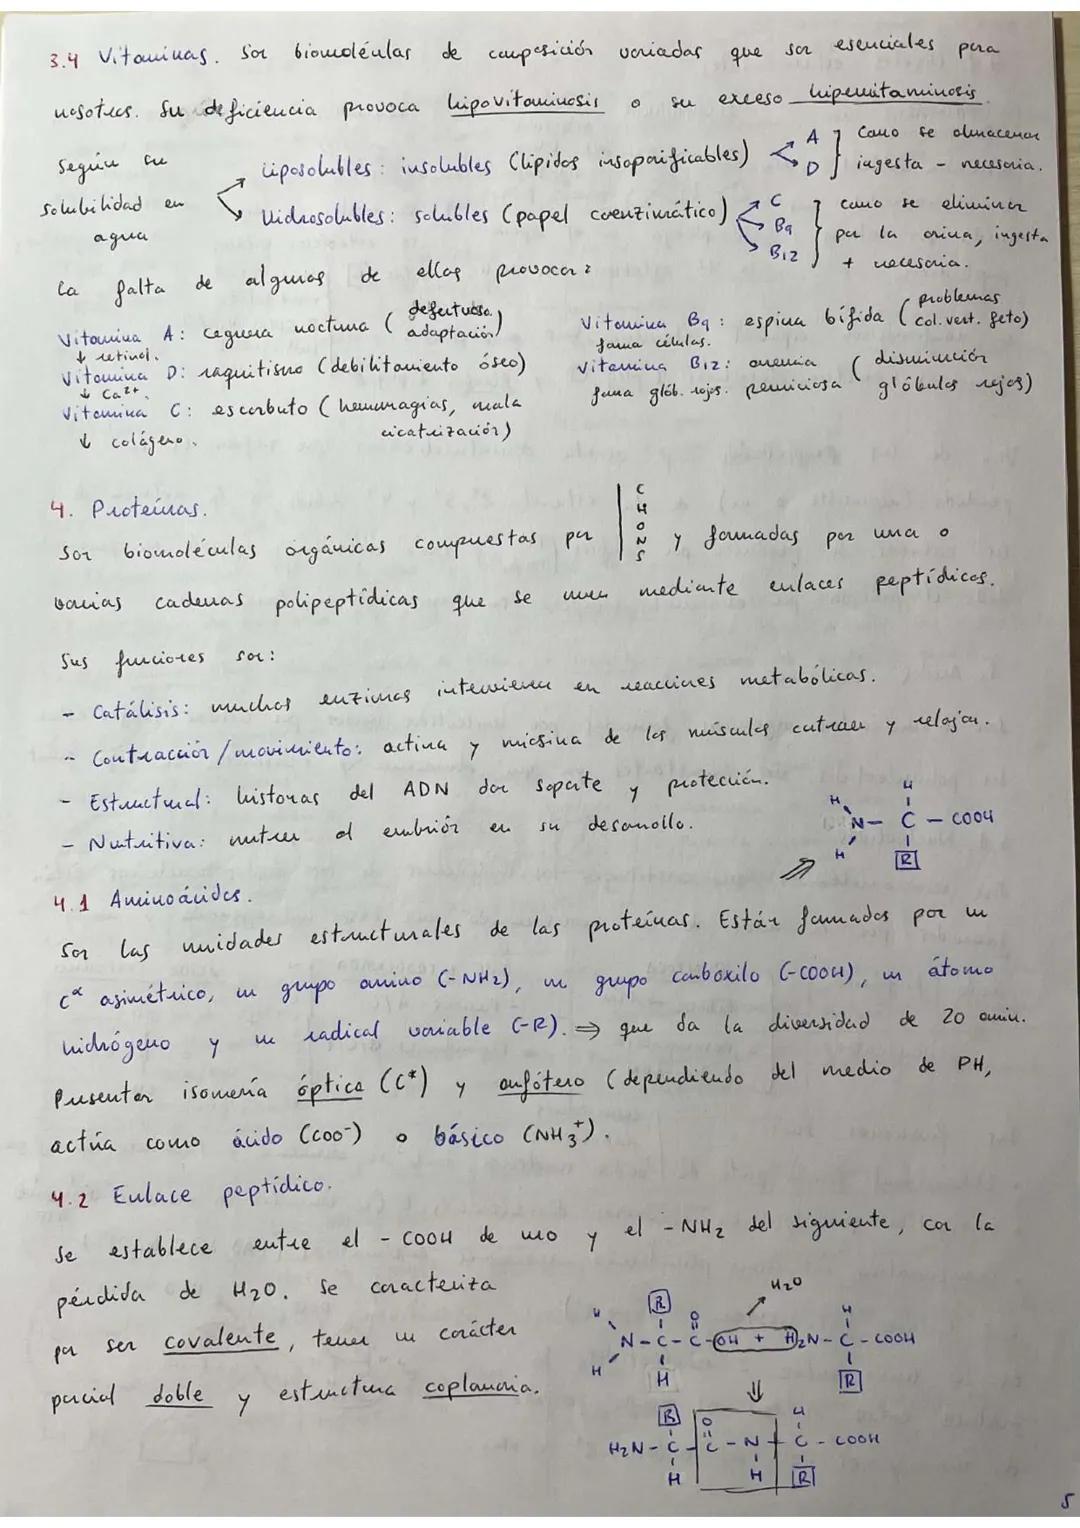 3.4 Vitaminas. Son biomoléulas de composición variadas que son esenciales para
nosotros. Su deficiencia provoca hipovitaminosis o su exceso hipervitaminosis
Según su solubilidad en agua
Liposolubles: insolubles (lípidos insaponificables) A D } Como se almacenan ingesta - necesaria.
Hidrosolubles: solubles (papel coenzimático) C B9 B12 } como se eliminan por la orina, ingesta + necesaria.
La falta de algunas de ellas provocan:
Vitamina A: ceguera nocturna (defectuosa adaptación)
↓ retinol.
Vitamina D: raquitismo (debilitamiento óseo)
↓ Ca2+.
Vitamina C: escorbuto (hemorragias, mala cicatrización)
↓ colágeno.
Vitamina B9: espina bífida (problemas col. vert. feto)
forma células.
Vitamina B12: anemia perniciosa (disminución glóbulos rojos)
forma glób. rojos.
4. Proteínas.
Son biomoléculas orgánicas compuestas por C H O N S y formadas por una o
varias cadenas polipeptídicas que se unen mediante enlaces peptídicos.
Sus funciones son:
- Catálisis: muchas enzimas intervienen en reacciones metabólicas.
- Contracción/movimiento: actina y miosina de los músculos contraer y relajar.
- Estructural: histonas del ADN dan soporte y protección.
- Nutritiva: nutren al embrión en su desarrollo.
H
H N - C - COOH
H R
4.1 Aminoácidos.
Son las unidades estructurales de las proteínas. Están formados por un
Cα asimétrico, un grupo amino (-NH2), un grupo carboxilo (-COOH), un átomo
hidrógeno y un radical variable (-R). ⇒ que da la diversidad de 20 amin.
Presentan isomería óptica (C*) y anfótero (dependiendo del medio de PH,
actúa como ácido (COO-) o básico (NH3+).
4.2 Enlace peptídico.
Se establece entre el - COOH de uno y el - NH2 del siguiente, con la
pérdida de H2O. Se caracteriza
por ser covalente, tener un carácter
parcial doble y estructura coplanaria.
H2O
H R O H
N - C - C - OH + H2N - C - COOH
H H R
⇓
R O H
H2N - C - C - N - C - COOH
H H R
5